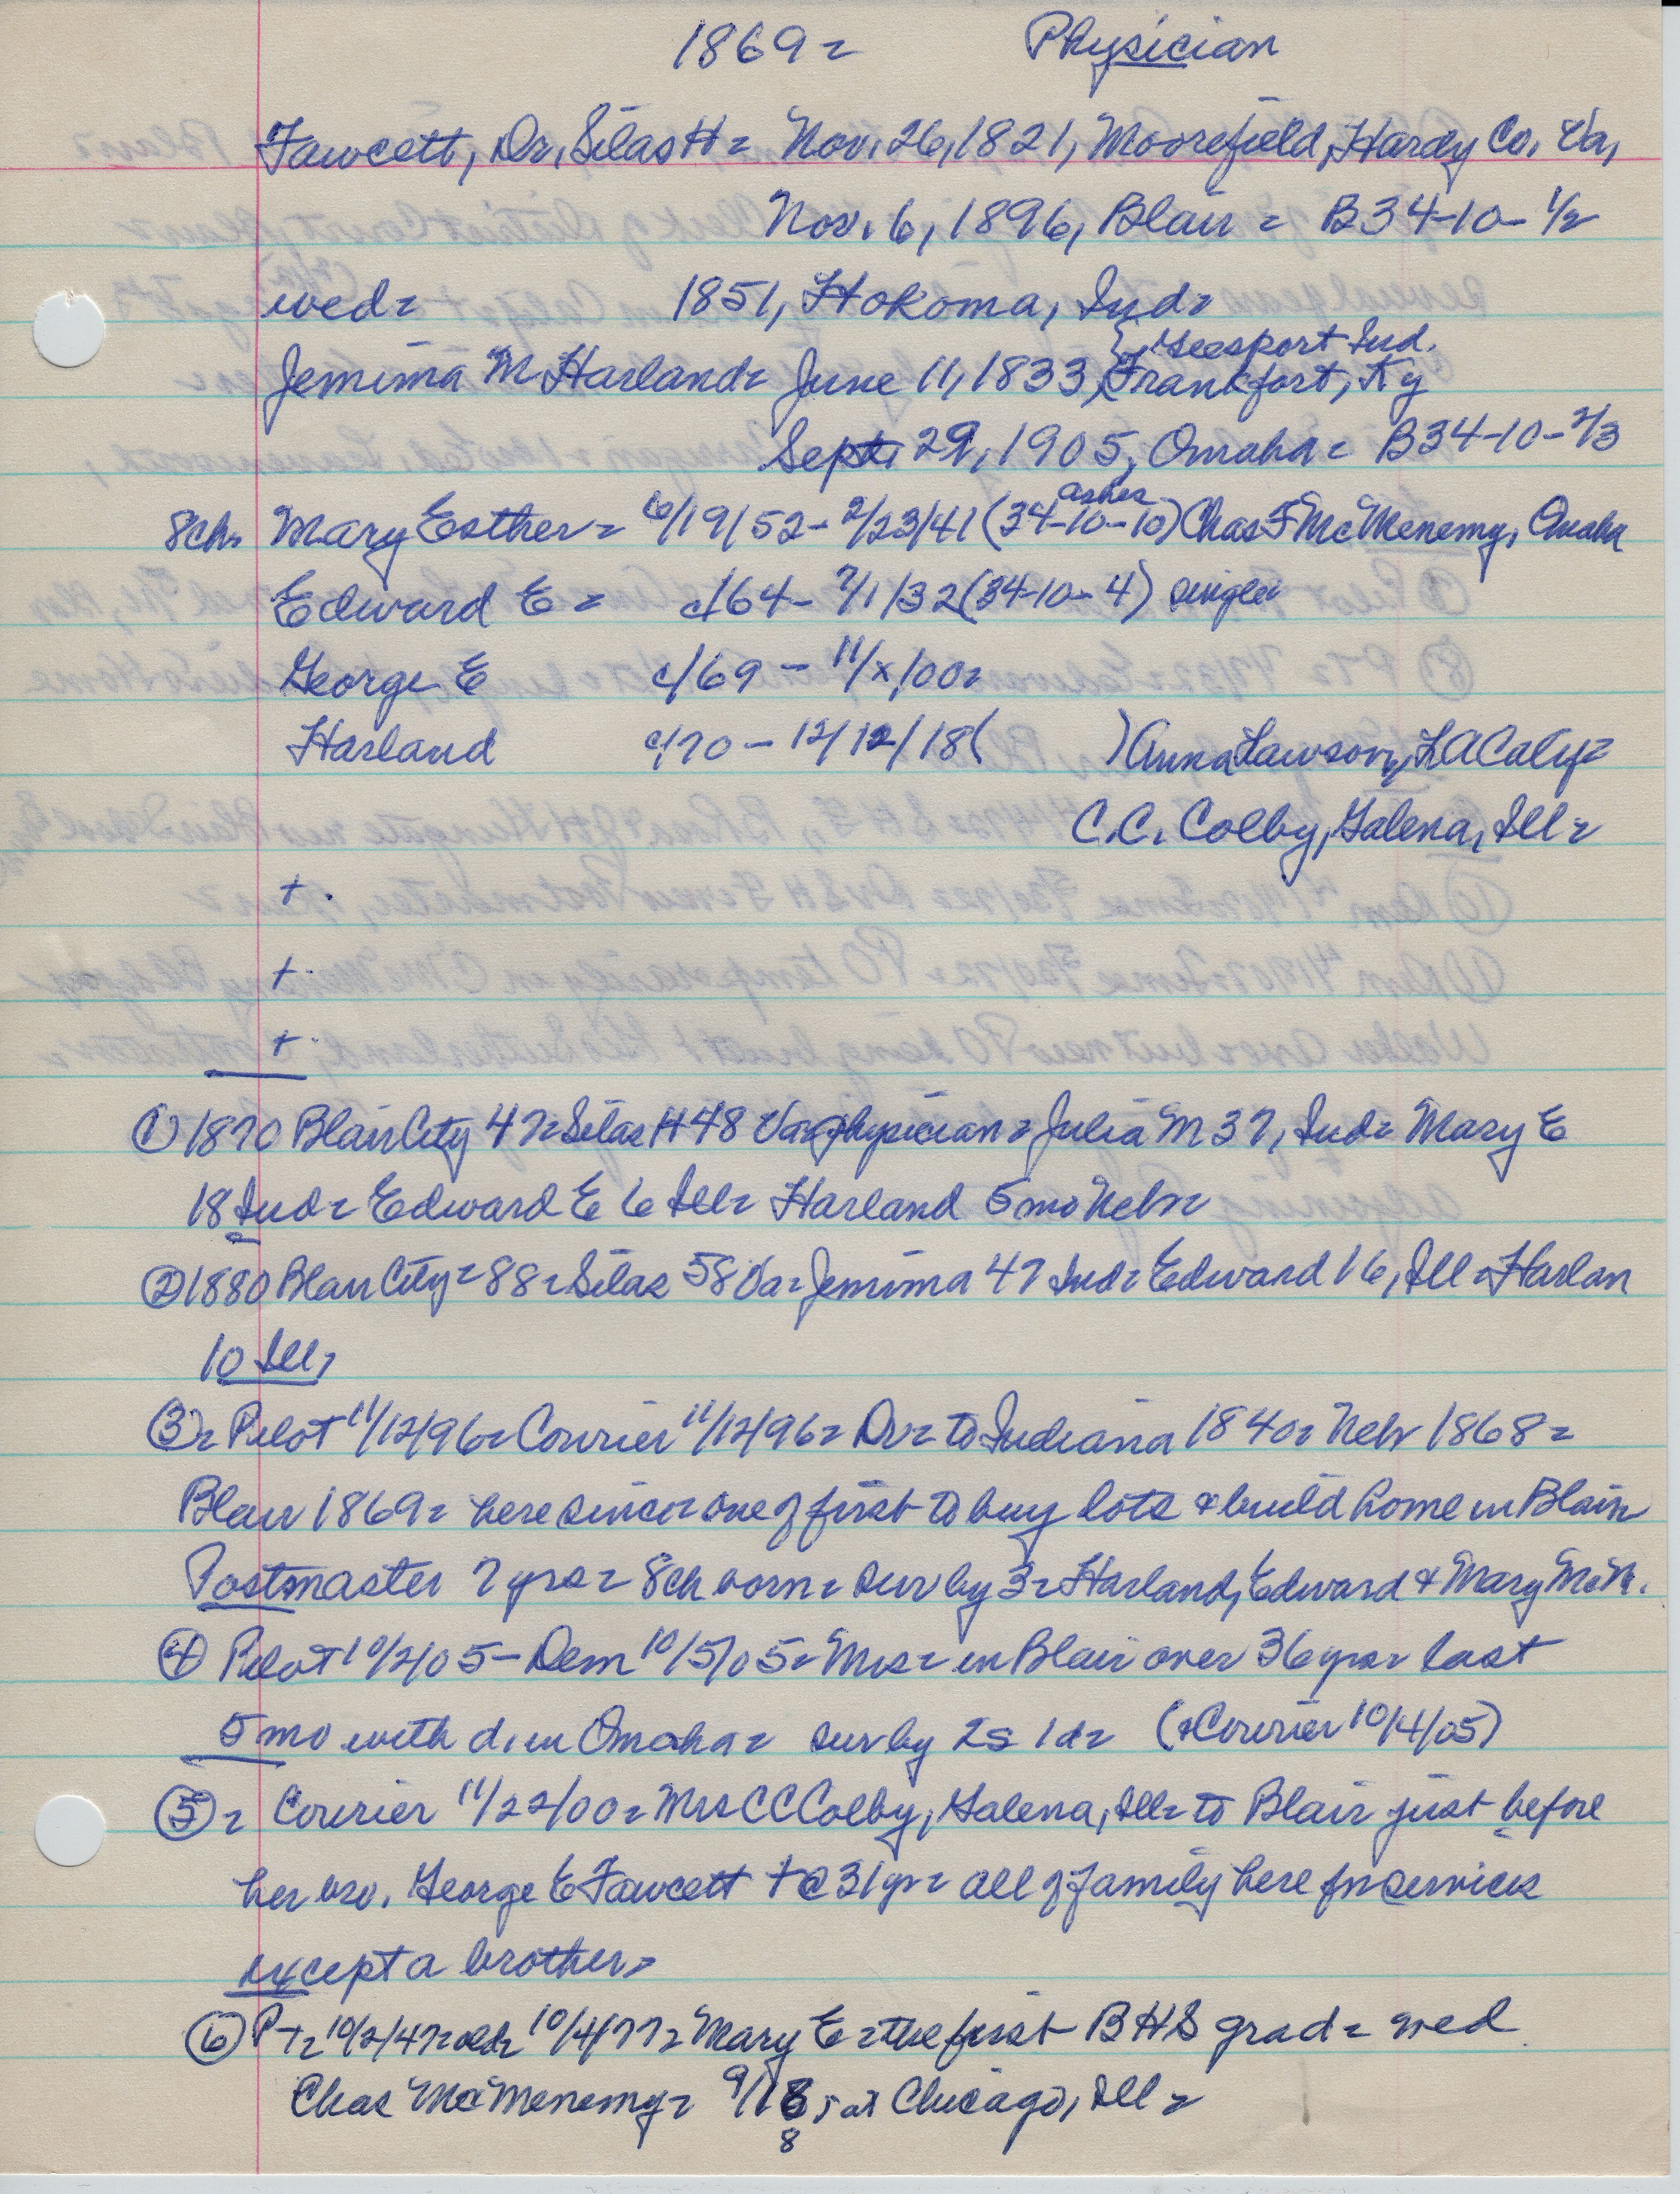 1869= Physician
Fawcett, Dr. Silas H= Nov. 26, 1821, Moorefield, Hardy Co. Va.
Nov. 6, 1896, Blair = B34-10-1/2
wed= 1851, Hokoma, Ind=
{ Geesport Ind.
Jemima M Harland= June 11, 1833, Frankfort, Ky
Sept. 29, 1905, Omaha = B34-10-2/3
ashes
8ch. Mary Esther = 6/19/52 - 2/23/41 (34-10-10) Chas F McMenemy, Omaha
Edward E = c/64 - 7/1/32 (34-10-4) single
George E c/69 - 11/x/00=
Harland c/70 - 12/12/18 ( ) Anna Lawson, LA Calif=
C.C. Colby, Galena, Ill=
+.
+.
+.
① 1870 Blair City 47= Silas H 48 Va= physician = Julia M 37, Ind= Mary E
18 Ind= Edward E 6 Ill= Harland 5 mo Nebr=
② 1880 Blair City = 88= Silas 58 Va= Jemima 47 Ind= Edward 16, Ill= Harlan
10 Ill,
③= Pilot 11/12/96= Courier 11/12/96= Dr= to Indiana 1840= Nebr 1868=
Blair 1869= here since= one of first to buy lots & build home in Blair=
Postmaster 7 yrs= 8ch born= sur by 3= Harland, Edward & Mary McM.
④ Pilot 10/2/05 - Dem 10/5/05= Mrs= in Blair over 36 yrs= last
5 mo with d. in Omaha= sur by 2s 1d= (&Courier 10/4/05)
⑤= Courier 11/22/00= Mrs CC Colby, Galena, Ill= to Blair just before
her bro. George E Fawcett + @ 31 yr= all of family here for services
except a brother=
⑥ P-T= 10/2/47= 10/4/77= Mary E= the first BHS grad= wed
Chas McMenemy= 9/18 at Chicago, Ill=
8